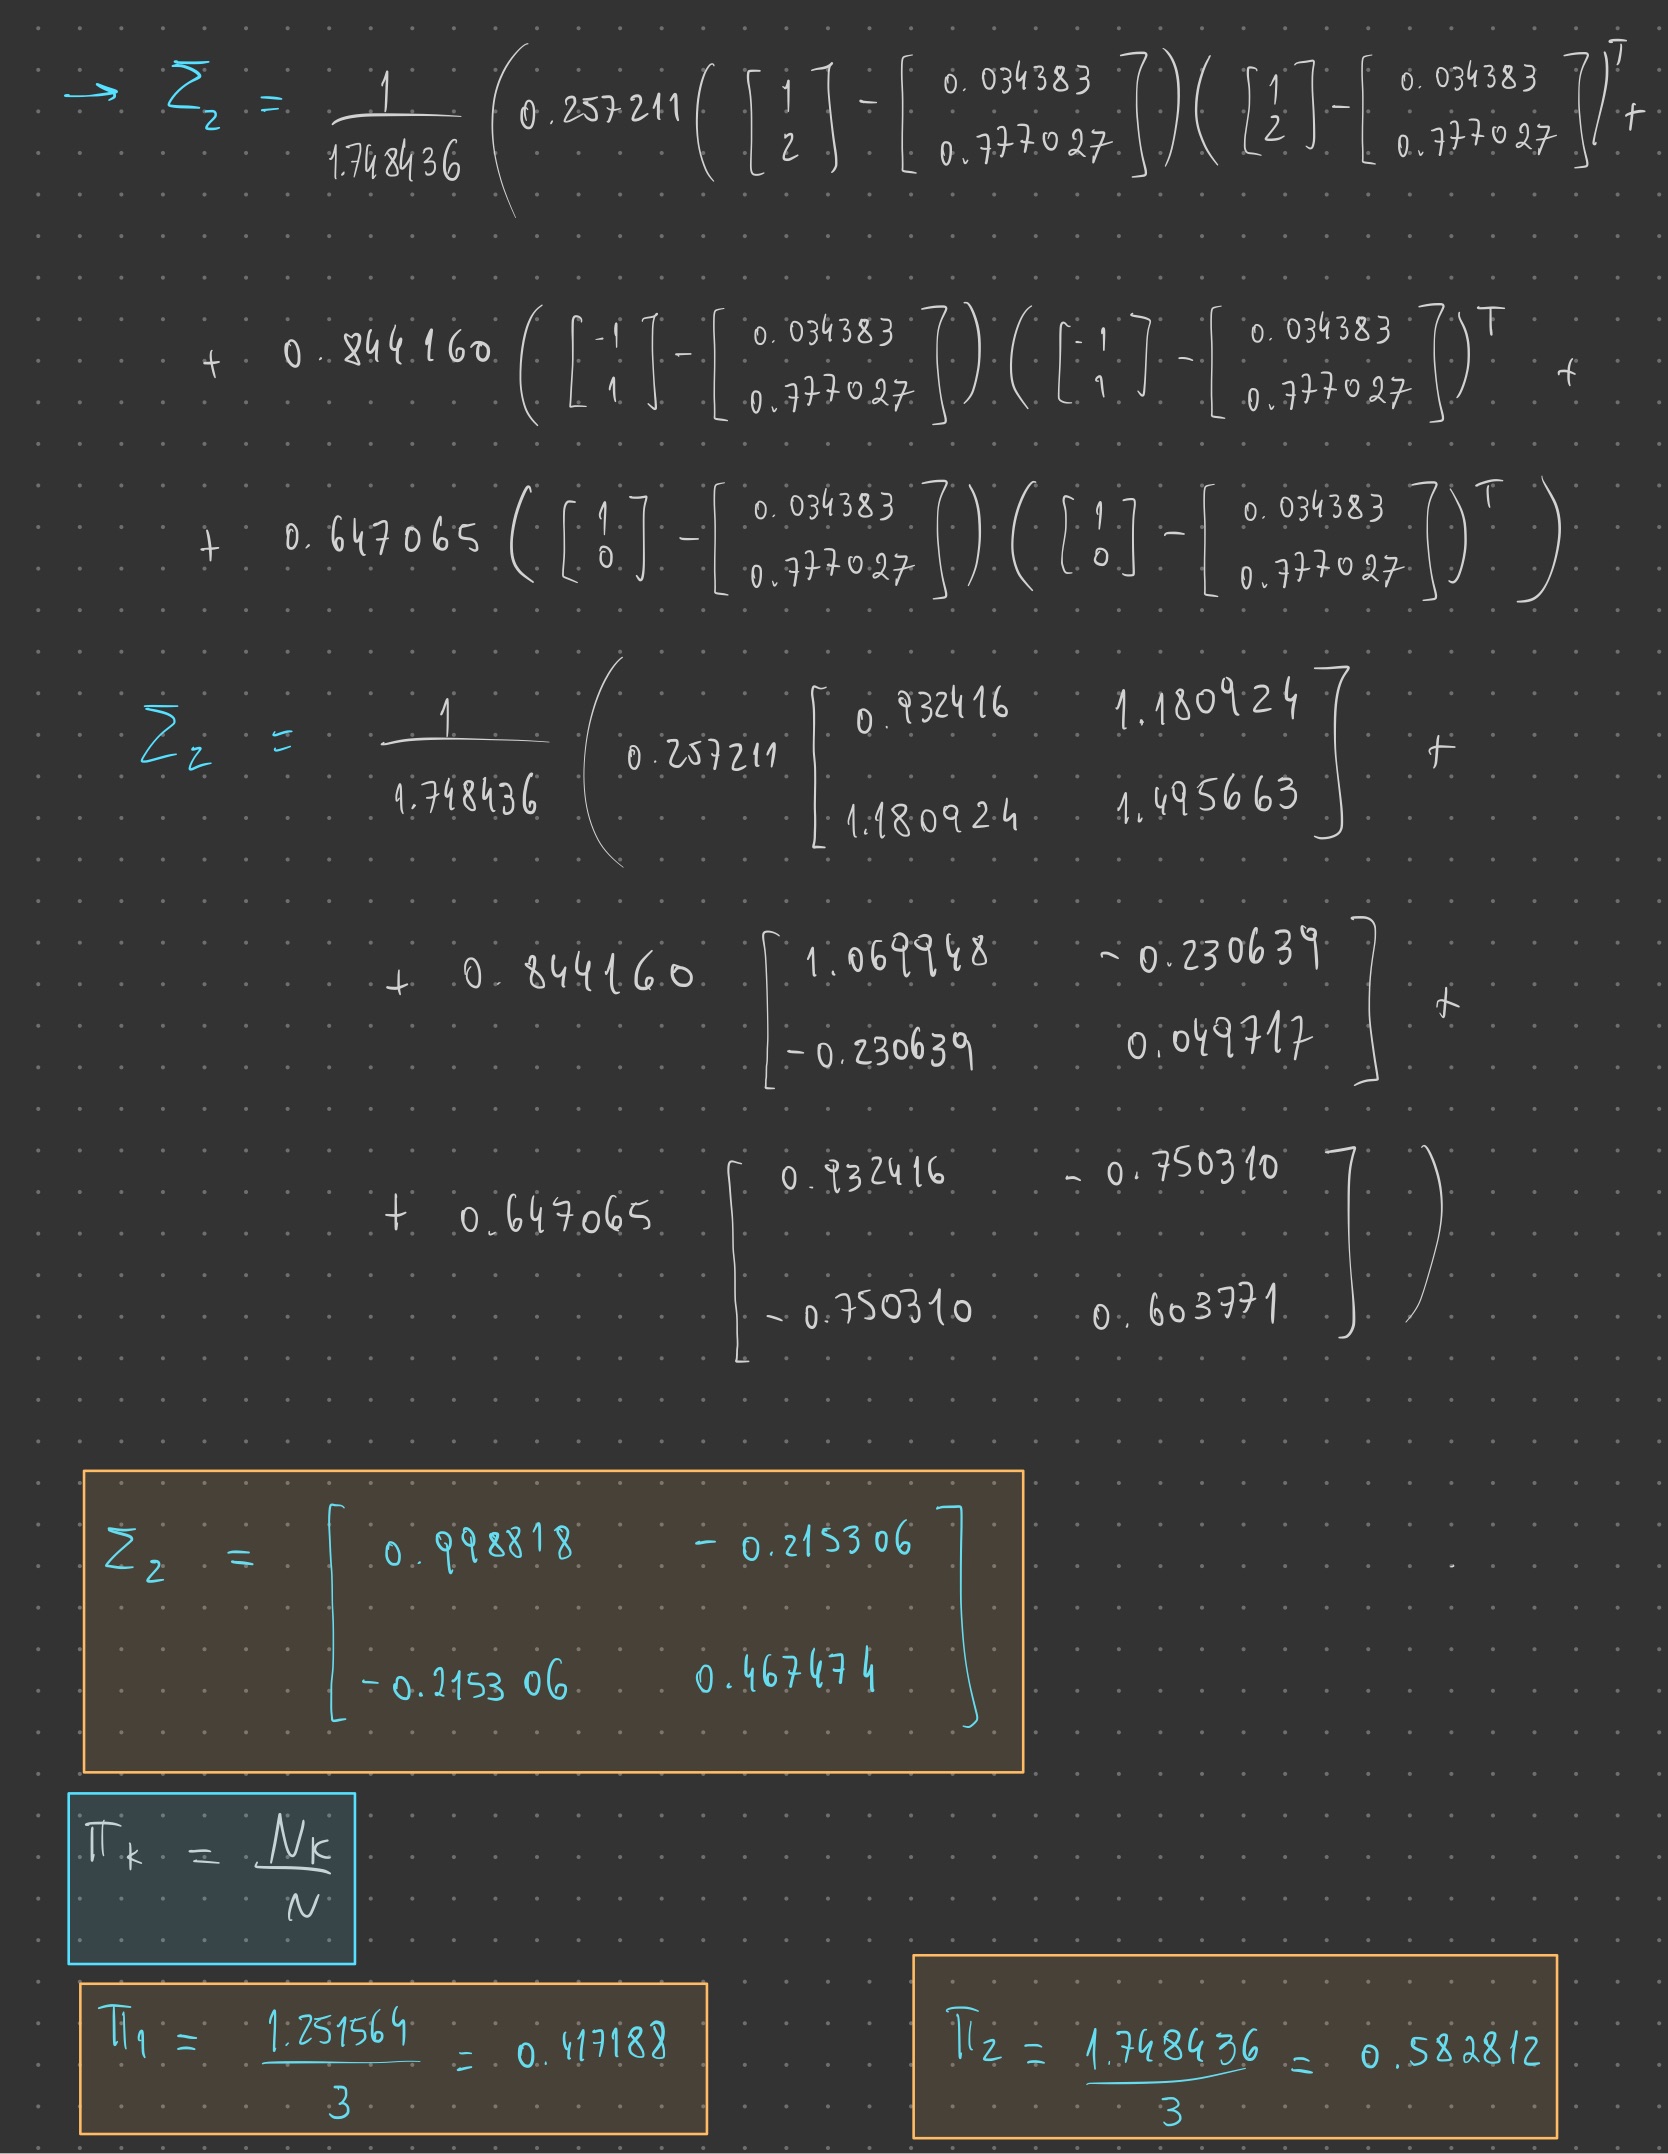 → Σ₂ = 1/1.748436 (0.257211 ([1 2] - [0.034383 0.777027]) ([1 2] - [0.034383 0.777027])ᵀ +
+ 0.844160 ([-1 1] - [0.034383 0.777027]) ([-1 1] - [0.034383 0.777027])ᵀ +
+ 0.647065 ([1 0] - [0.034383 0.777027]) ([1 0] - [0.034383 0.777027])ᵀ)
Σ₂ = 1/1.748436 (0.257211 [0.932416 1.180924
1.180924 1.495663] +
+ 0.844160 [1.069948 -0.230639
-0.230639 0.049717] +
+ 0.647065 [0.932416 -0.750310
-0.750310 0.603771])
Σ₂ = [0.998818 -0.215306
-0.215306 0.467474]
πₖ = Nₖ/N
π₁ = 1.251564/3 = 0.417188
π₂ = 1.748436/3 = 0.582812